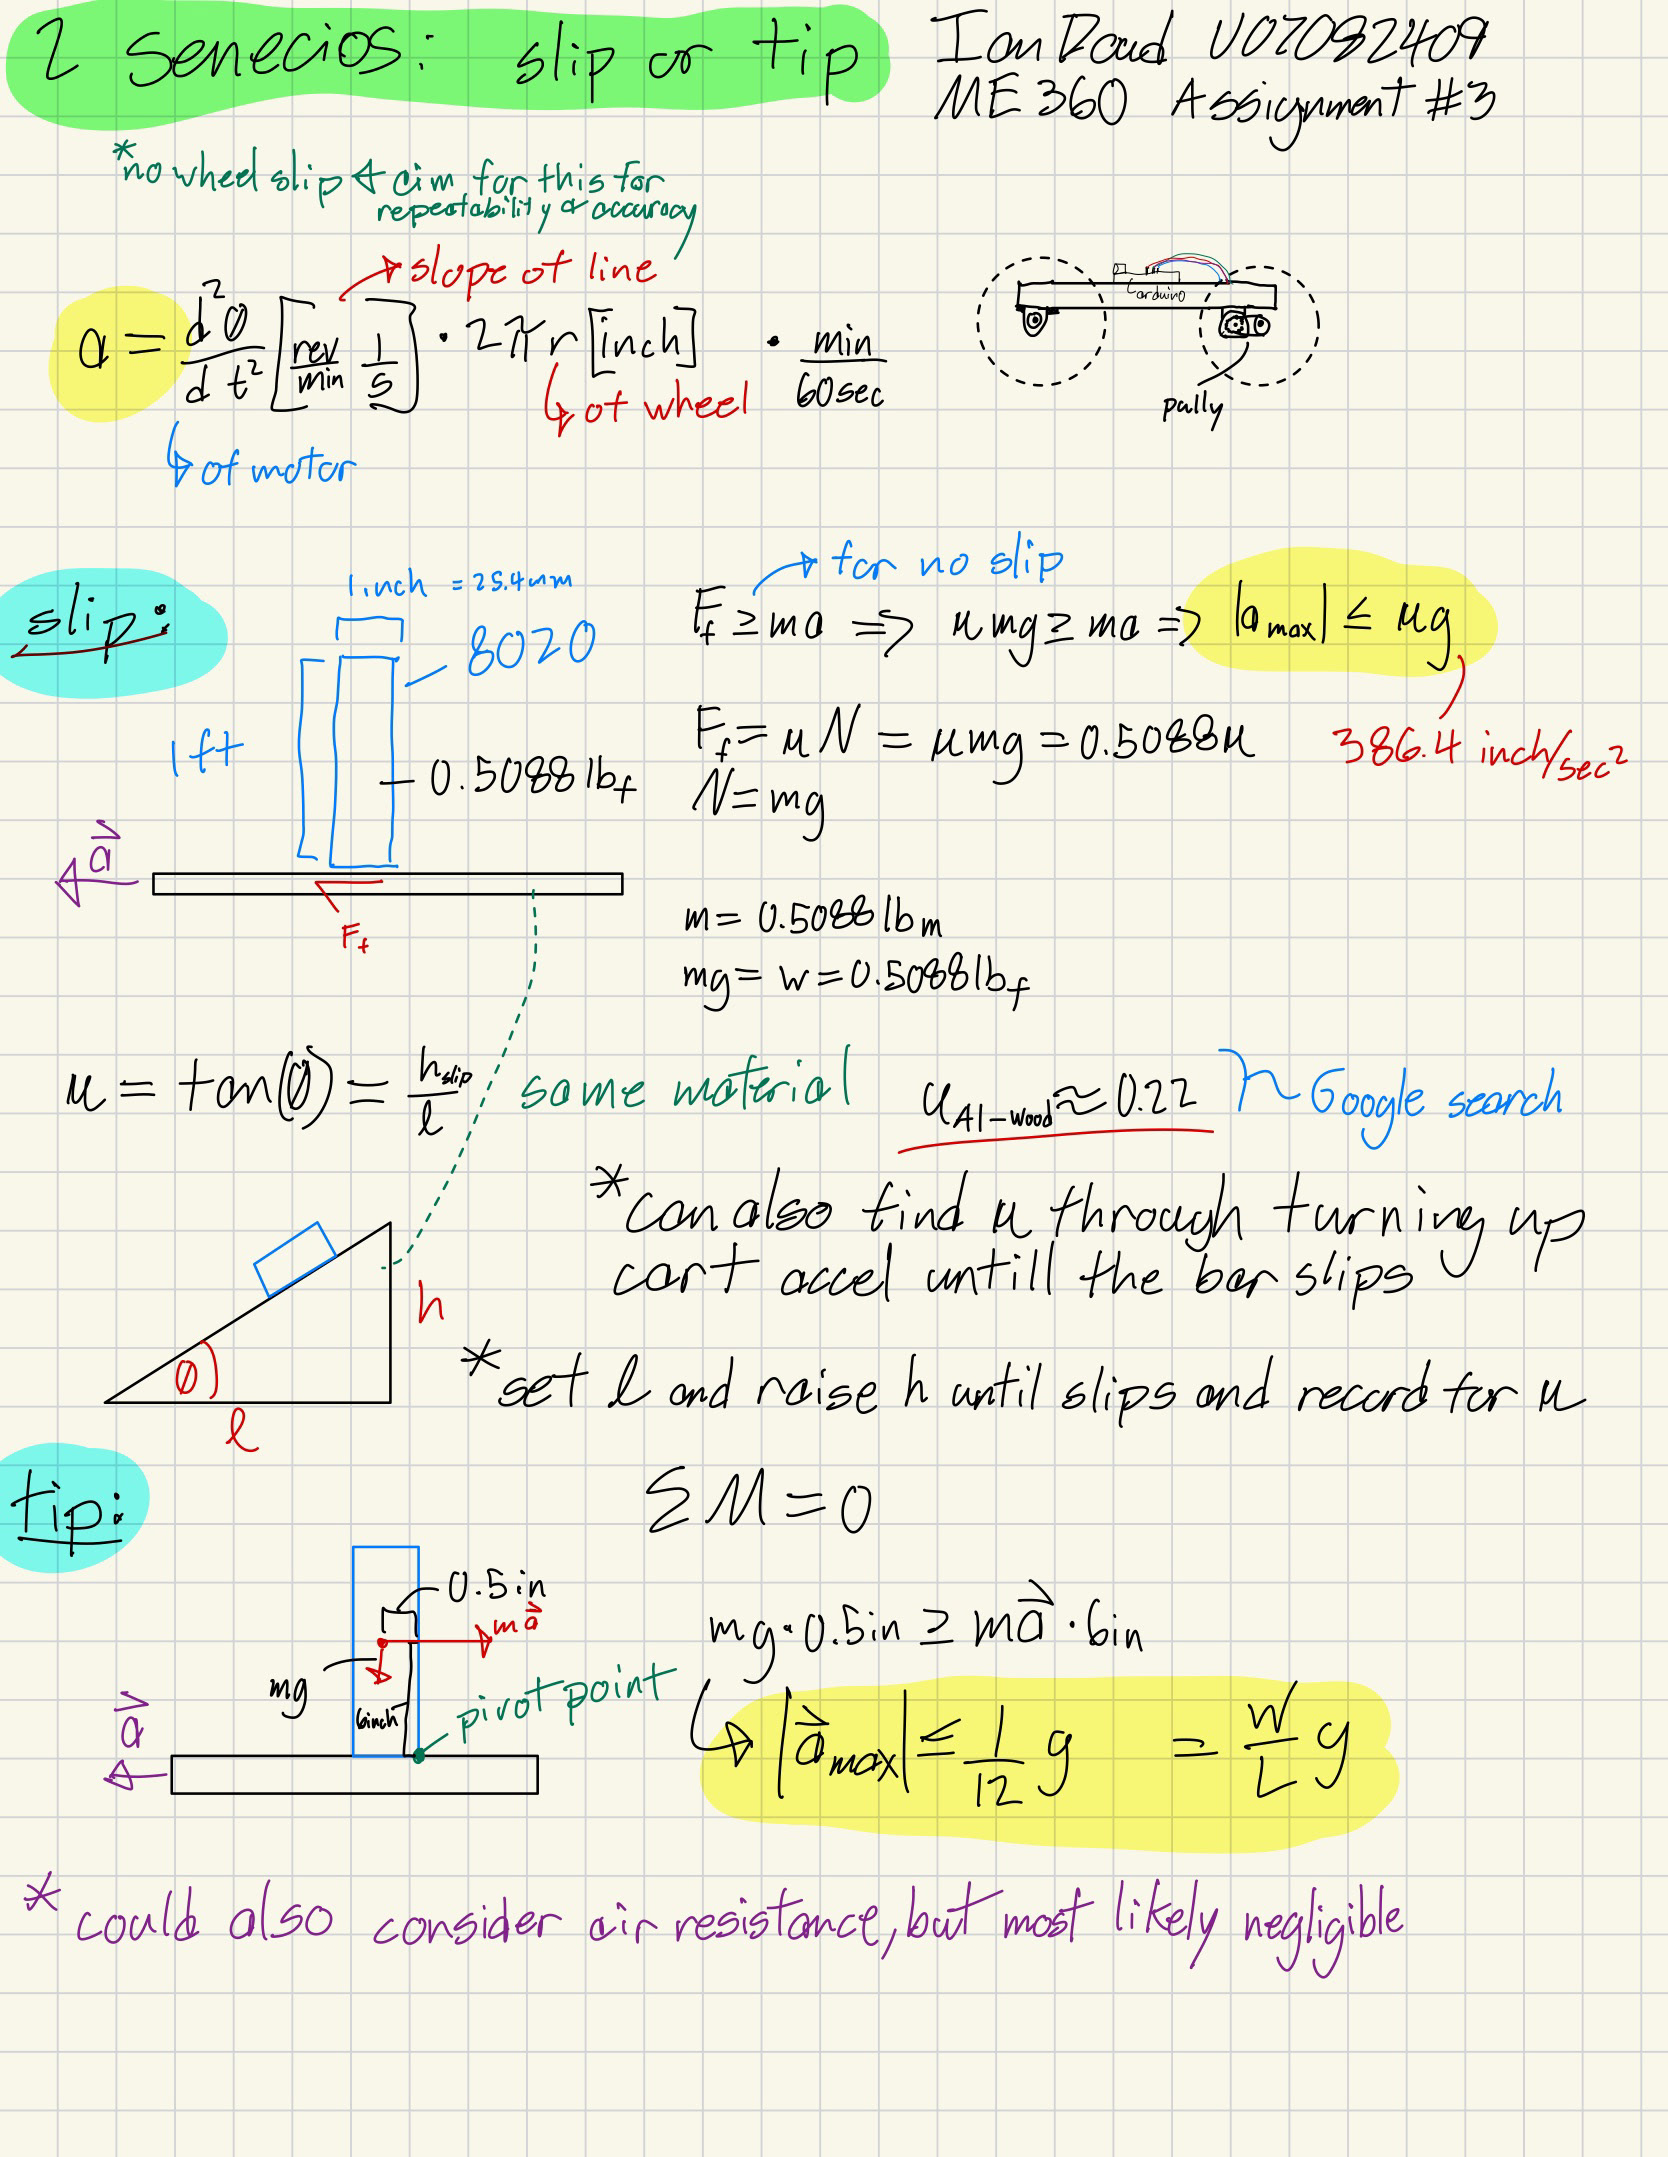 2 Senecios: slip or tip
Ian Doud U07082409
ME 360 Assignment #3
*no wheel slip ← aim for this for
repeatability & accuracy
→ slope of line
a = d²θ/dt² [rev/min 1/s] · 2πr [inch] · min/60sec
↳ of motor
↳ of wheel
arduino
pully
slip:
1 inch = 25.4mm
8020
1 ft
0.5088 lbf
a⃗
Ff
→ for no slip
Ff ≥ ma ⇒ μmg ≥ ma ⇒ |amax| ≤ μg
386.4 inch/sec²
Ff = μN = μmg = 0.5088μ
N = mg
m = 0.5088 lbm
mg = w = 0.5088 lbf
μ = tan(θ) = hslip/l
same material
μAl-wood ≈ 0.22
Google search
*can also find μ through turning up
cart accel untill the bar slips
h
θ
l
*set l and raise h until slips and record for μ
tip:
ΣM = 0
0.5in
ma⃗
mg
6inch
pivot point
a⃗
mg · 0.5in ≥ ma⃗ · 6in
↳ |a⃗max| ≤ 1/12 g = W/L g
*could also consider air resistance, but most likely negligible